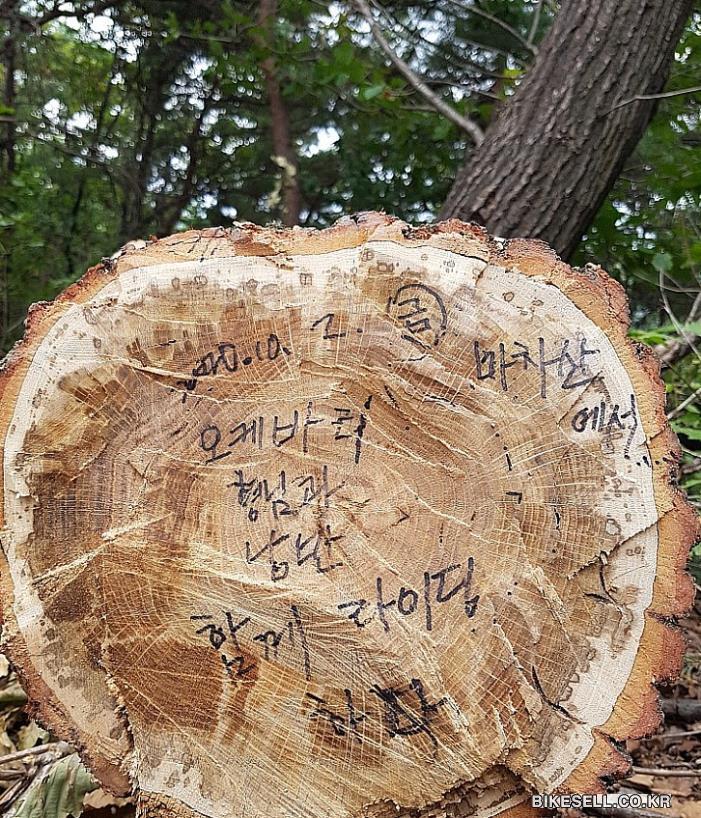 2020.10. 2. 금
마차산
에서
오케바리
형님과
남반
함께 라이딩
하다
BIKESELL.CO.KR